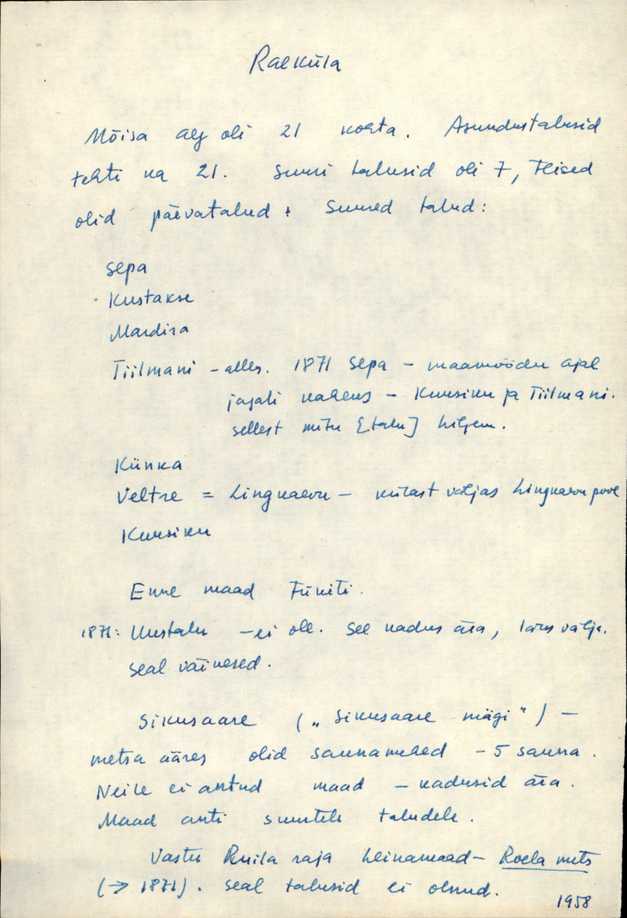 Raeküla
Mõisa aj oli 21 kohta. Asundustalusid
tehti ka 21. Suuri talusid oli 7, teised
olid päevatalud. Suured talud:
Sepa
Kustakse
Mardisa
Tiilmani - alles. 1871 Sepa - maamõõdu ajal
jagati kaheks - Kuusiku ja Tiilmani.
sellest mitu [talu] hiljem.
Künka
Veltre = Lingukaevu - külast väljas Lingukaevu pool
Kuusiku
Enne maad
1871: Uustalu - ei ole. See kadus ära, läks välja.
seal väiksed.
Sikusaare („Sikusaare mägi") -
metsa ääres olid saunamehed - 5 sauna.
Neile ei antud maad - kadusid ära.
Maad anti suurtele taludele.
Vastu Ruila raja heinamaad - Roela mets
(→ 1871). Seal talusid ei olnud.
1958